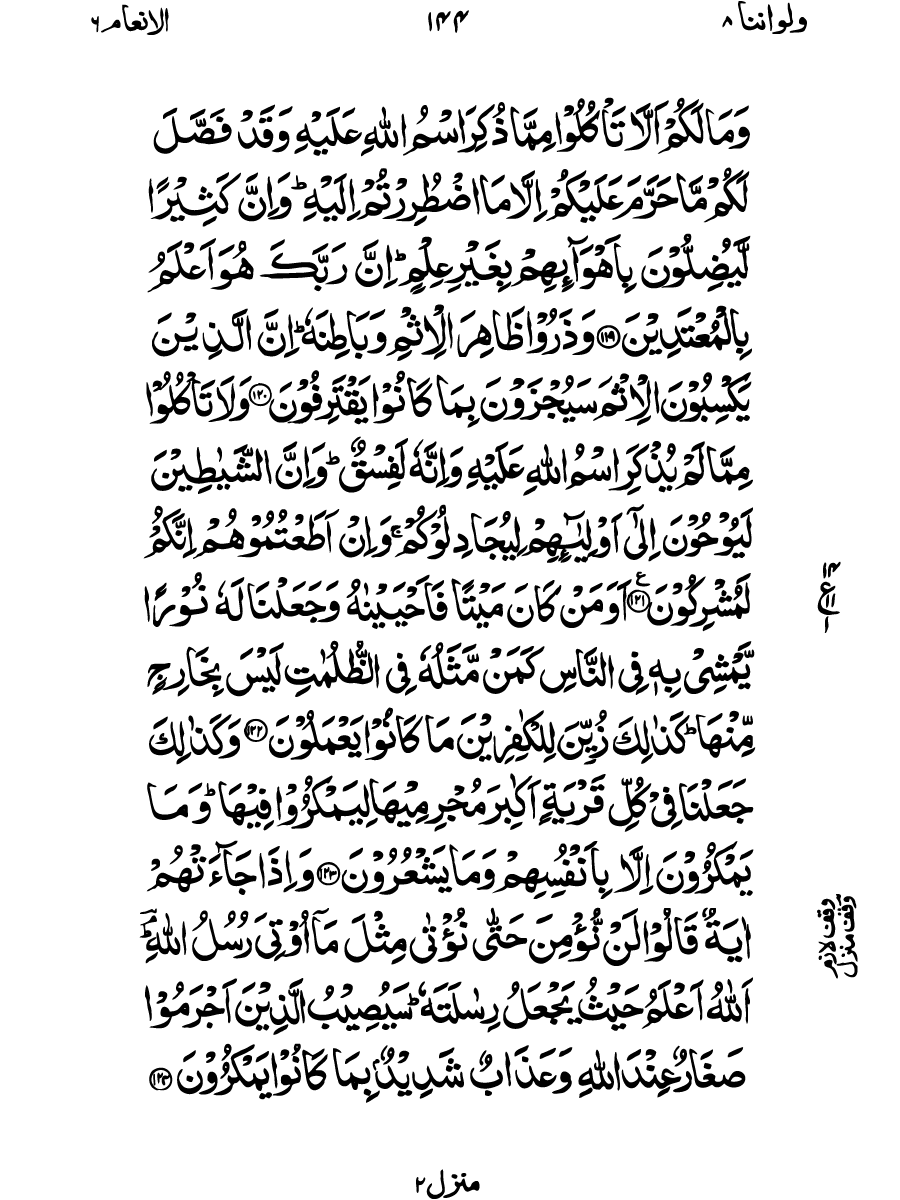 ولواننا ۸
۱۴۴
الانعام ۶
وَمَا لَكُمْ اَلَّا تَاْكُلُوْا مِمَّا ذُكِرَ اسْمُ اللّٰهِ عَلَيْهِ وَقَدْ فَصَّلَ
لَكُمْ مَّا حَرَّمَ عَلَيْكُمْ اِلَّا مَا اضْطُرِرْتُمْ اِلَيْهِ ؕ وَاِنَّ كَثِيْرًا
لَّيُضِلُّوْنَ بِاَهْوَآىِٕهِمْ بِغَيْرِ عِلْمٍ ؕ اِنَّ رَبَّكَ هُوَ اَعْلَمُ
بِالْمُعْتَدِيْنَ ﴿۱۱۹﴾ وَذَرُوْا ظَاهِرَ الْاِثْمِ وَبَاطِنَهٗ ؕ اِنَّ الَّذِيْنَ
يَكْسِبُوْنَ الْاِثْمَ سَيُجْزَوْنَ بِمَا كَانُوْا يَقْتَرِفُوْنَ ﴿۱۲۰﴾ وَلَا تَاْكُلُوْا
مِمَّا لَمْ يُذْكَرِ اسْمُ اللّٰهِ عَلَيْهِ وَاِنَّهٗ لَفِسْقٌ ؕ وَاِنَّ الشَّيٰطِيْنَ
لَيُوْحُوْنَ اِلٰٓى اَوْلِيٰٓـِٕهِمْ لِيُجَادِلُوْكُمْ ۚ وَاِنْ اَطَعْتُمُوْهُمْ اِنَّكُمْ
لَمُشْرِكُوْنَ ﴿۱۲۱﴾ ع اَوَمَنْ كَانَ مَيْتًا فَاَحْيَيْنٰهُ وَجَعَلْنَا لَهٗ نُوْرًا
يَّمْشِيْ بِهٖ فِى النَّاسِ كَمَنْ مَّثَلُهٗ فِى الظُّلُمٰتِ لَيْسَ بِخَارِجٍ
مِّنْهَا ؕ كَذٰلِكَ زُيِّنَ لِلْكٰفِرِيْنَ مَا كَانُوْا يَعْمَلُوْنَ ﴿۱۲۲﴾ وَكَذٰلِكَ
جَعَلْنَا فِيْ كُلِّ قَرْيَةٍ اَكٰبِرَ مُجْرِمِيْهَا لِيَمْكُرُوْا فِيْهَا ؕ وَمَا
يَمْكُرُوْنَ اِلَّا بِاَنْفُسِهِمْ وَمَا يَشْعُرُوْنَ ﴿۱۲۳﴾ وَاِذَا جَآءَتْهُمْ
اٰيَةٌ قَالُوْا لَنْ نُّؤْمِنَ حَتّٰى نُؤْتٰى مِثْلَ مَآ اُوْتِيَ رُسُلُ اللّٰهِ ؕۘ
اَللّٰهُ اَعْلَمُ حَيْثُ يَجْعَلُ رِسٰلَتَهٗ ؕ سَيُصِيْبُ الَّذِيْنَ اَجْرَمُوْا
صَغَارٌ عِنْدَ اللّٰهِ وَعَذَابٌ شَدِيْدٌۢ بِمَا كَانُوْا يَمْكُرُوْنَ ﴿۱۲۴﴾
۱۴
ع ۱۱
۱
وقف لازم
وقف منزل
منزل ۲